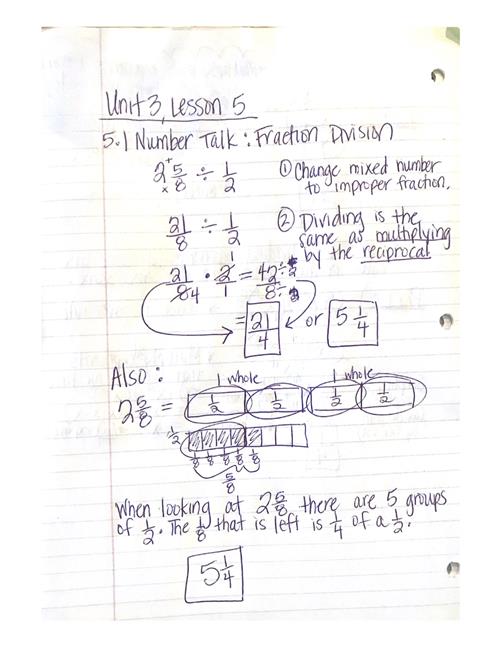 Unit 3, Lesson 5
5.1 Number Talk: Fraction Division
2 5/8 ÷ 1/2
+
x
① Change mixed number
to improper fraction.
21/8 ÷ 1/2
② Dividing is the
same as multiplying
by the reciprocal
21/8 4 · 2 1/1 = 42 ÷ 2/8 ÷ 2
= 21/4 or 5 1/4
Also:
1 whole 1 whole
2 5/8 = 1/2 1/2 1/2 1/2
1/2
1/8 1/8 1/8 1/8 1/8
5/8
When looking at 2 5/8 there are 5 groups
of 1/2. The 1/8 that is left is 1/4 of a 1/2.
5 1/4